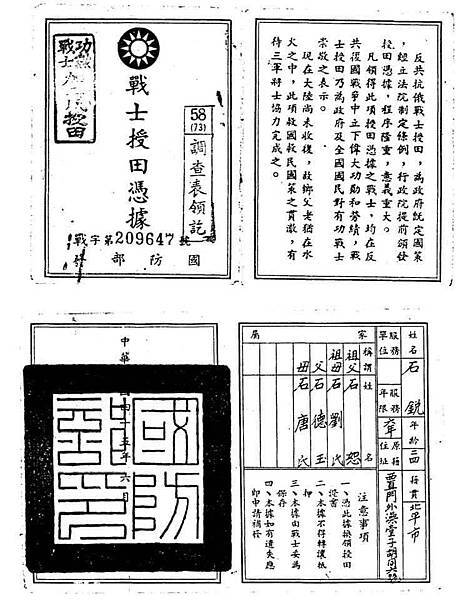 戰士授田憑據
58
(73)
調查表領訖
戰字第209647號
國防部
反共抗俄戰士授田,為政府既定國策
,經立法院制定條例,行政院提前頒發
授田憑據,程序隆重,意義重大。
凡領得此項授田憑據之戰士,均在反
共復國戰爭中立下偉大功勛和勞績,戰
士授田乃為政府及全國國民對有功戰士
崇敬之表示。
現在大陸尚未收復,故鄉父老猶在水
火之中,此項救國救民國策之貫澈,有
待三軍將士協力完成之。
中華民國四十五年六月
國防部印
姓名 石銳 年齡 籍貫 北平市
服務單位 服務年限 原籍住址
家屬
稱謂 姓名
祖父 石恕
祖母 石劉氏
父 石德玉
母 石唐氏
注意事項
一、憑此據換領授田證書
二、本據不得轉讓抵押
三、本據由戰士妥為保存
四、本據如有遺失應即申請補發